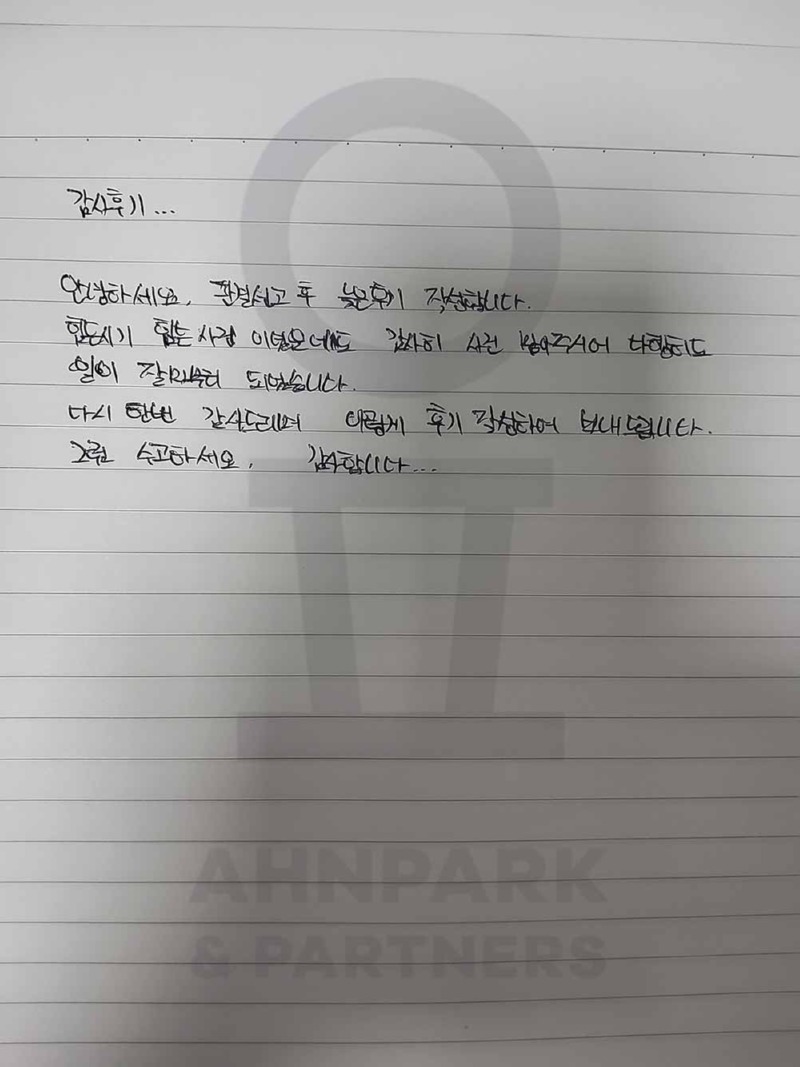 감사후기...
안녕하세요, 판결선고 후 늦은후기 작성합니다.
힘든시기 힘든 사정 이였을텐데도 감사히 사건 맡아주시어 다행히도
일이 잘 되었습니다.
다시 한번 감사드리며 이렇게 후기 작성하여 보내드립니다.
그럼 수고하세요, 감사합니다...
AHNPARK
& PARTNERS